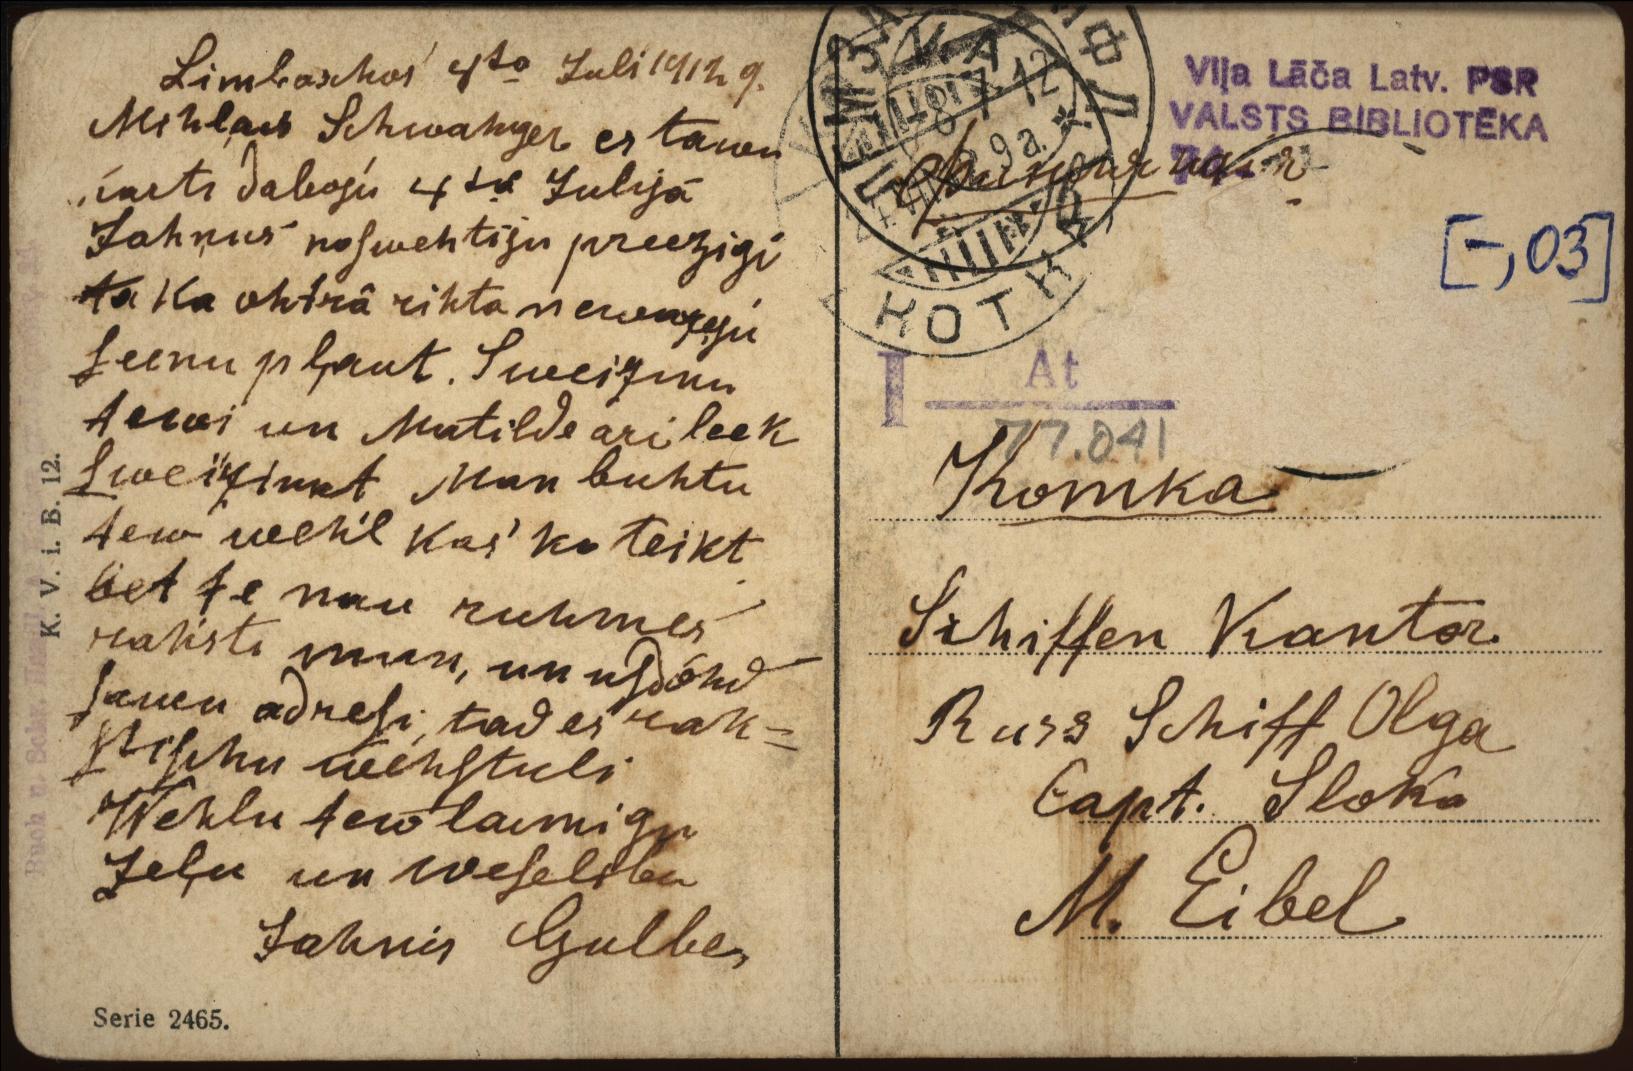 Limbaschos 4to Juli 1912 g.
Mihļais Schwahger es tawu
karti daboju 4tā Julijā
Jahņus noswehtiju preezigi
ta ka ohtrā rihtā newareju
seenu pļaut. Sweizinu
tewi un Matilde ari leek
sweizinat Man buhtu
tew wehl kas ko teikt
bet te nau ruhmes
raksti man, un usdohd
sawu adresi, tad es rak=
stischu wehstuli
Wehlu tew laimigu
zeļu un weselibu
Jahnis Gulbe,
Serie 2465.
K. V. i. B. 12.
8 7 12
KOTKA
Viļa Lāča Latv. PSR
VALSTS BIBLIOTĒKA
[-,03]
I At
77.041
Komka
Schiffen Kantor.
Russ Schiff Olga
Capt. Sloka
M. Eibel